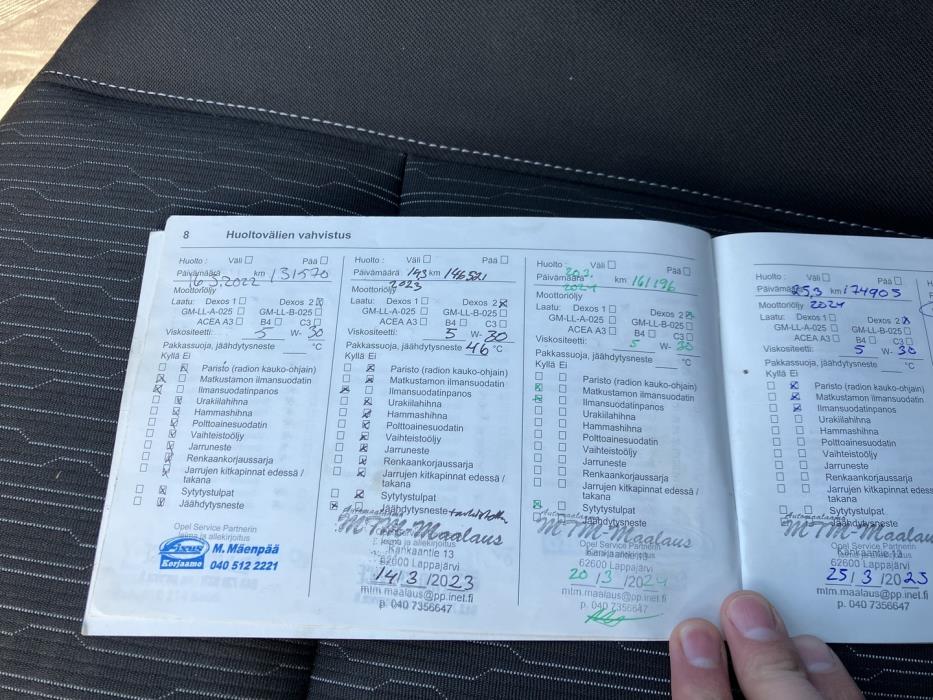 8 Huoltovälien vahvistus
Huolto : Väli Pää
Päivämäärä km 131570
16.3.2022
Moottoriöljy
Laatu: Dexos 1 Dexos 2
GM-LL-A-025 GM-LL-B-025
ACEA A3 B4 C3
Viskositeetti: 5 W- 30
Pakkassuoja, jäähdytysneste °C
Kyllä Ei
Paristo (radion kauko-ohjain)
Matkustamon ilmansuodatin
Ilmansuodatinpanos
Urakiilahihna
Hammashihna
Polttoainesuodatin
Vaihteistoöljy
Jarruneste
Renkaankorjaussarja
Jarrujen kitkapinnat edessä /
takana
Sytytystulpat
Jäähdytysneste
Opel Service Partnerin
leima ja allekirjoitus
Fixus M. Mäenpää
Korjaamo 040 512 2221
Huolto : Väli Pää
Päivämäärä 14.3 km 146521
2023
Moottoriöljy
Laatu: Dexos 1 Dexos 2
GM-LL-A-025 GM-LL-B-025
ACEA A3 B4 C3
Viskositeetti: 5 W- 30
Pakkassuoja, jäähdytysneste 46 °C
Kyllä Ei
Paristo (radion kauko-ohjain)
Matkustamon ilmansuodatin
Ilmansuodatinpanos
Urakiilahihna
Hammashihna
Polttoainesuodatin
Vaihteistoöljy
Jarruneste
Renkaankorjaussarja
Jarrujen kitkapinnat edessä /
takana
Sytytystulpat
Jäähdytysneste
Automaalaamo
MTM-Maalaus
Kankaantie 13
62600 Lappajärvi
14/3/2023
mtm.maalaus@pp.inet.fi
p. 040 7356647
Huolto : Väli Pää
Päivämäärä 20.3. km 161196
2024
Moottoriöljy
Laatu: Dexos 1 Dexos 2
GM-LL-A-025 GM-LL-B-025
ACEA A3 B4 C3
Viskositeetti: 5 W- 30
Pakkassuoja, jäähdytysneste °C
Kyllä Ei
Paristo (radion kauko-ohjain)
Matkustamon ilmansuodatin
Ilmansuodatinpanos
Urakiilahihna
Hammashihna
Polttoainesuodatin
Vaihteistoöljy
Jarruneste
Renkaankorjaussarja
Jarrujen kitkapinnat edessä /
takana
Sytytystulpat
Jäähdytysneste
Automaalaamo
MTM-Maalaus
Opel Service Partnerin
Kankaantie 13
62600 Lappajärvi
20/3/2024
mtm.maalaus@pp.inet.fi
p. 040 7356647
Huolto : Väli Pää
Päivämäärä 25.3 km 174905
Moottoriöljy 2024
Laatu: Dexos 1 Dexos 2
GM-LL-A-025 GM-LL-B-025
ACEA A3 B4 C3
Viskositeetti: 5 W- 30
Pakkassuoja, jäähdytysneste °C
Kyllä Ei
Paristo (radion kauko-ohjain)
Matkustamon ilmansuodatin
Ilmansuodatinpanos
Urakiilahihna
Hammashihna
Polttoainesuodatin
Vaihteistoöljy
Jarruneste
Renkaankorjaussarja
Jarrujen kitkapinnat edessä /
takana
Sytytystulpat
Jäähdytysneste
Automaalaamo
MTM-Maalaus
Opel Service Partnerin
Kankaantie 13
62600 Lappajärvi
25/3/2025
mtm.maalaus@pp.inet.fi
p. 040 7356647